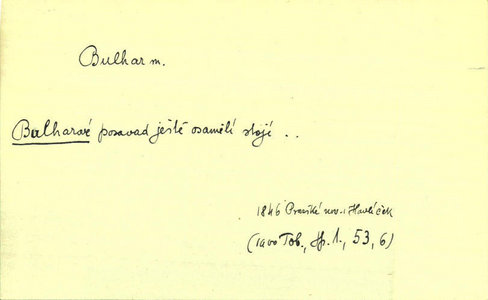 Bulhar m.
Bulharové posavad ještě osamělí stojí ..
1846 Pražské nov. Havlíček
(1900 Tob., 1., 53, 6)